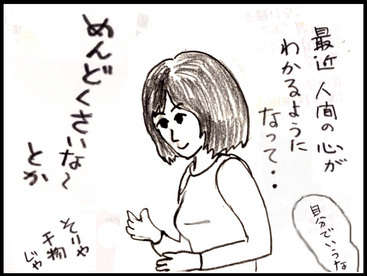 最近人間の心が
わかるように
なって・・
めんどくさいな〜
とか
自分でいうな
そりゃ
干物
じゃ